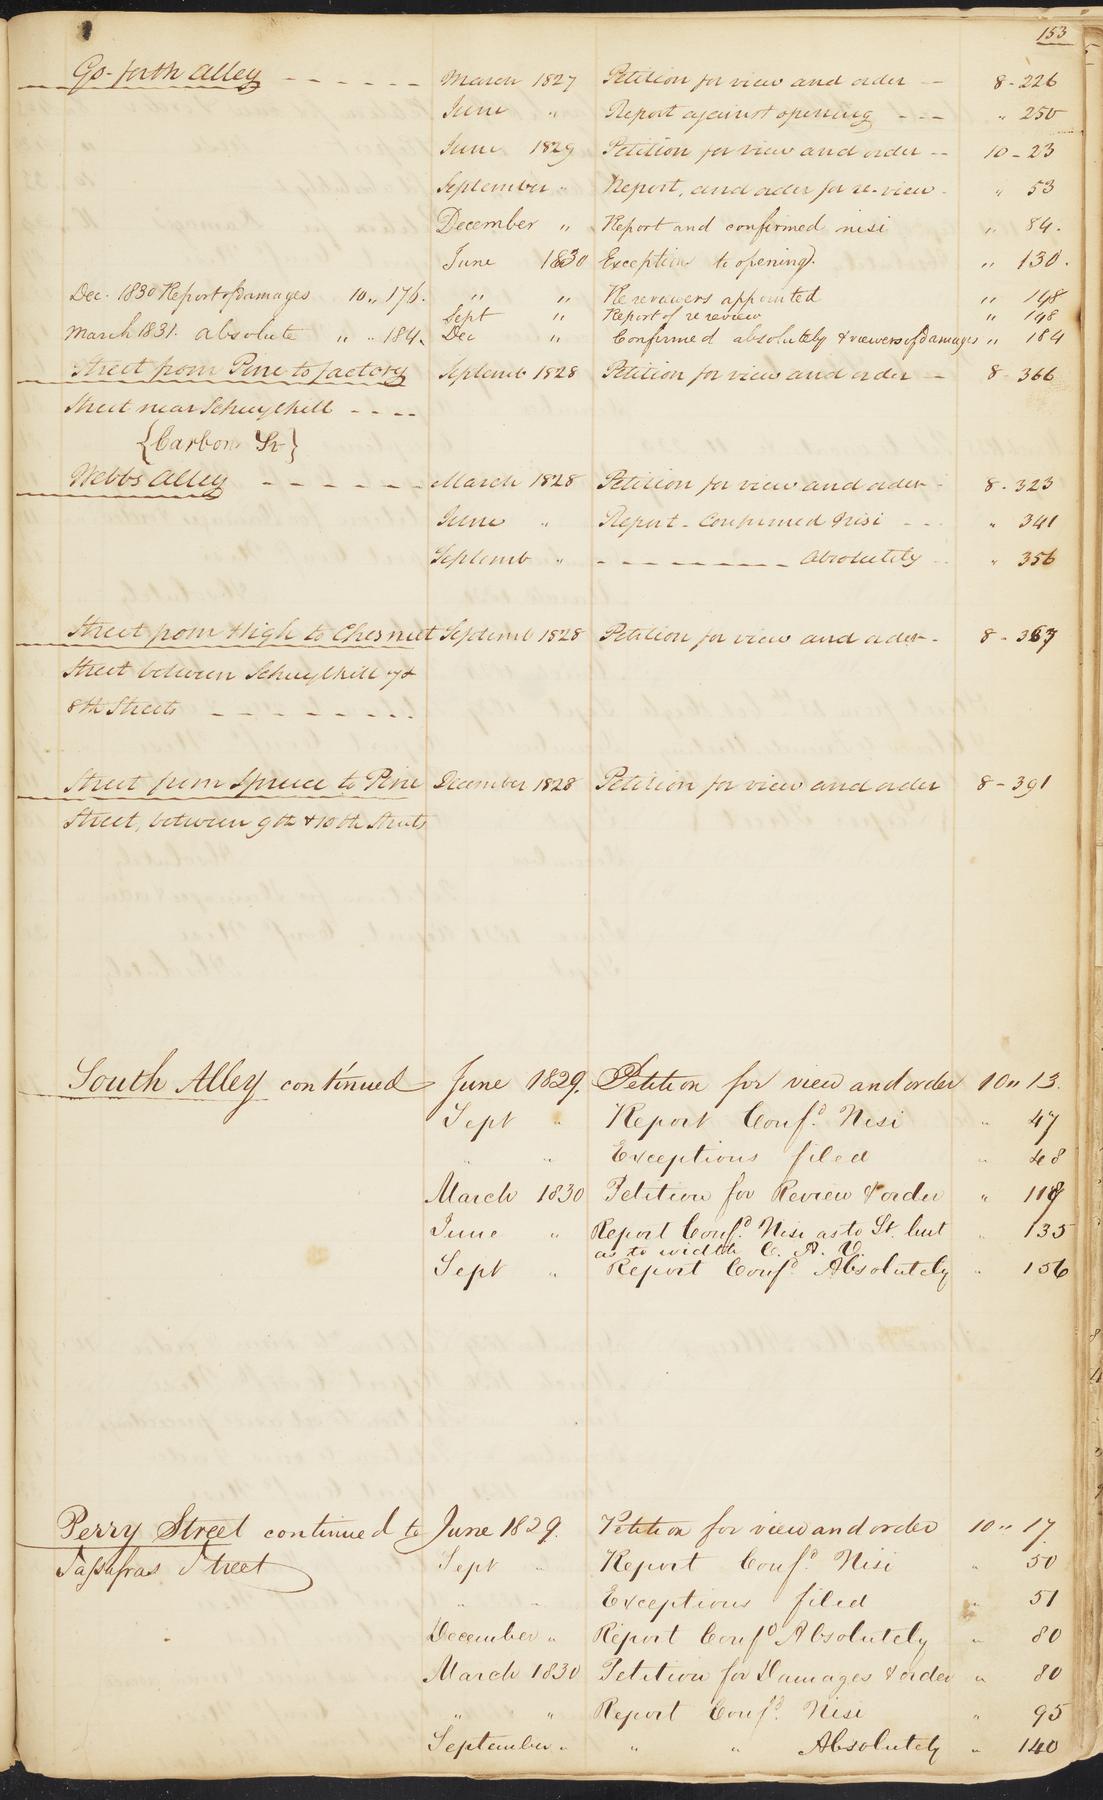 153
Go-forth Alley - - - - - - March 1827 Petition for view and order -- 8 - 226
June " Report against opening - - - " 250
June 1829 Petition for view and order -- 10 - 23
September " Report, and order for re-view - " 53
December " Report and confirmed nisi " 84.
June 1830 Exception to opening. " 130.
Dec. 1830 Report of damages 10 " 176. " " Re reviewers appointed " 148
Sept " Report of re review " 148
March 1831. absolute " " 184. Dec " Confirmed absolutely & viewers of damages " 184
Street from Pine to factory Septemb 1828 Petition for view and order -- 8 - 366
Street near Schuylkill - - - -
{Carbon St}
Webbs Alley - - - - - - March 1828 Petition for view and order - 8 - 323
June " Report - Confirmed Nisi - - - " 341
Septemb " - - - - - - - - - Absolutely - - " 356
Street from High to Chesnut Septemb 1828 Petition for view and order - 8 - 367
Street between Schuylkill 7th &
8th Streets - - - - - - - -
Street from Spruce to Pine December 1828 Petition for view and order 8 - 391
Street, between 9th & 10th Streets
South Alley continued June 1829. Petition for view and order 10 " 13.
Sept " Report Conf.d Nisi " 47
" " Exceptions filed " 48
March 1830 Petition for Review & order "
June " Report Conf.d Nisi as to St. but " 135
as to width C. A. V.
Sept " Report Conf.d Absolutely " 156
Perry Street continued to June 1829. Petition for view and order 10 " 17.
Sassafras Street Sept " Report Conf.d Nisi " 50
" " Exceptions filed " 51
December " Report Conf.d Absolutely " 80
March 1830 Petition for Damages & order " 80
" " Report Conf.d Nisi " 95
September " " " Absolutely " 140